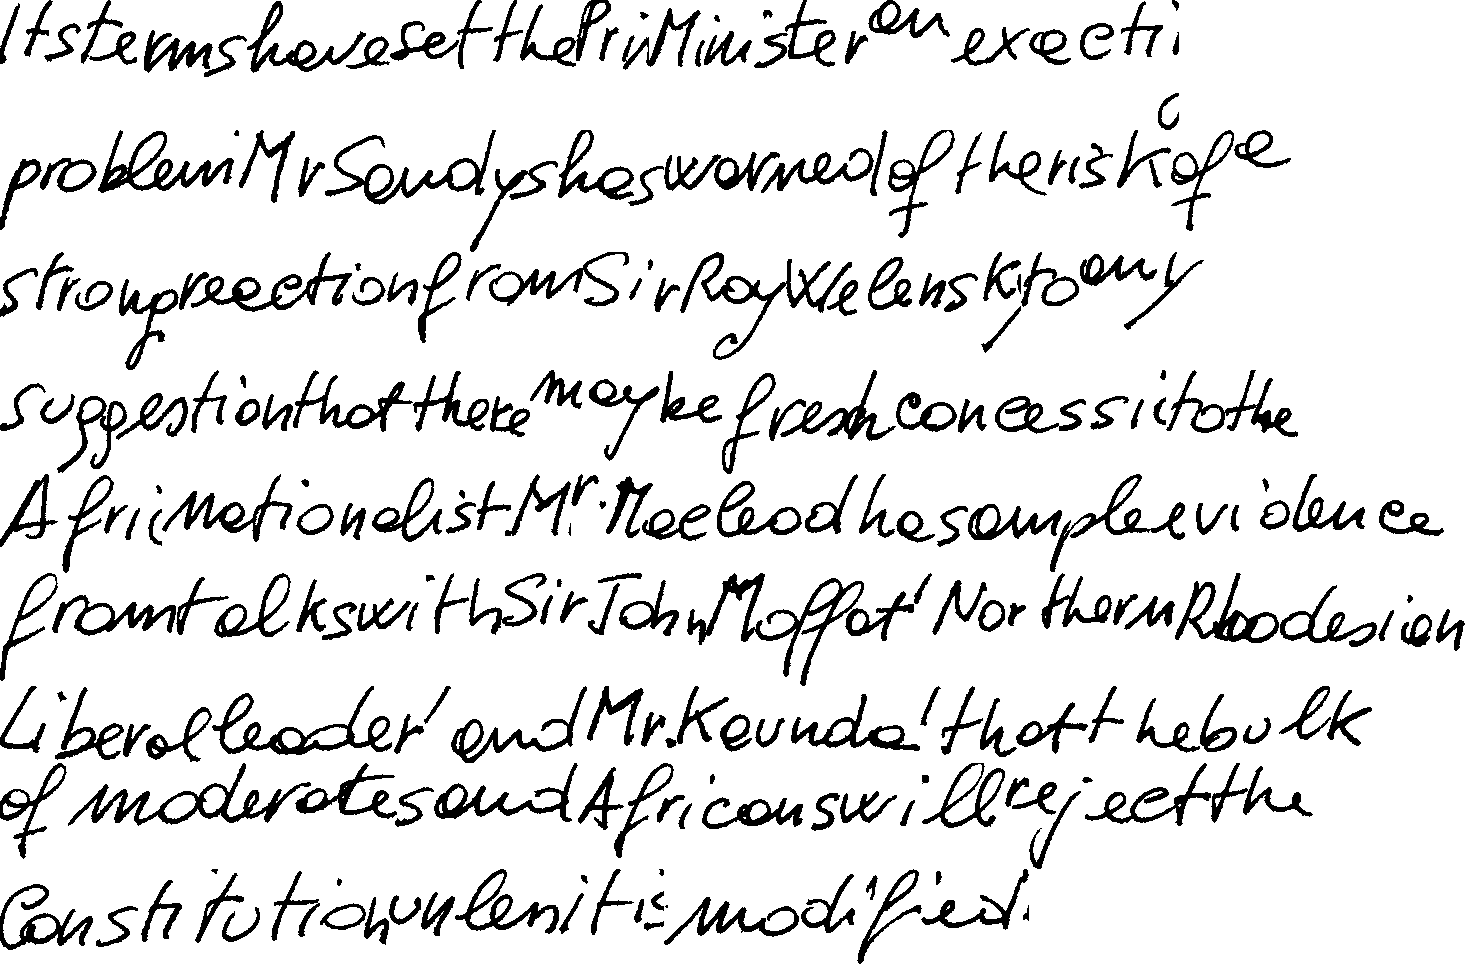 Its terms have set the Pri Minister an exacti
problem Mr Sandys has warned of the risk of a
strong reaction from Sir Roy Welensky to any
suggestion that there may be fresh concessi to the
Afri Nationalist. Mr. Macleod has ample evidence
from talks with Sir John Moffat' Northern Rhodesian
Liberal leader' and Mr. Kaunda' that the bulk
of moderates and Africans will reject the
Constitution unlen it is modified.